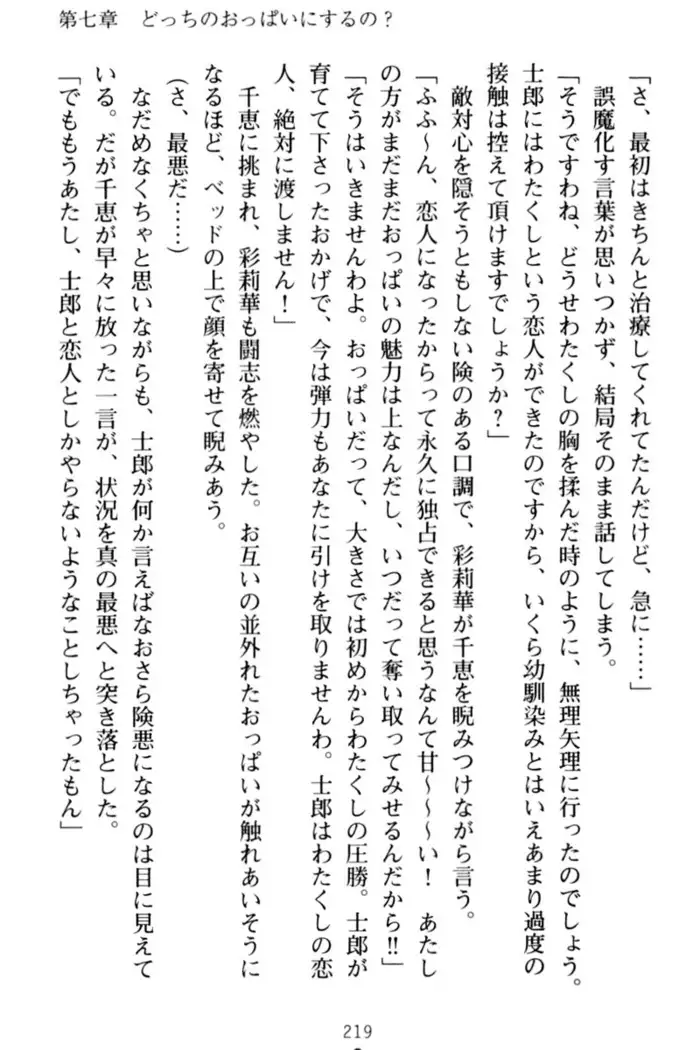 第七章　どっちのおっぱいにするの？
「さ、最初はきちんと治療してくれてたんだけど、急に……」
　誤魔化す言葉が思いつかず、結局そのまま話してしまう。
「そうですわね、どうせわたくしの胸を揉んだ時のように、無理矢理に行ったのでしょう。
士郎にはわたくしという恋人ができたのですから、いくら幼馴染みとはいえあまり過度の
接触は控えて頂けますでしょうか？」
　敵対心を隠そうともしない険のある口調で、彩莉華が千恵を睨みつけながら言う。
「ふふ〜ん、恋人になったからって永久に独占できると思うなんて甘〜〜〜い！　あたし
の方がまだまだおっぱいの魅力は上なんだし、いつだって奪い取ってみせるんだから!!」
「そうはいきませんわよ。おっぱいだって、大きさでは初めからわたくしの圧勝。士郎が
育てて下さったおかげで、今は弾力もあなたに引けを取りませんわ。士郎はわたくしの恋
人、絶対に渡しません！」
　千恵に挑まれ、彩莉華も闘志を燃やした。お互いの並外れたおっぱいが触れあいそうに
なるほど、ベッドの上で顔を寄せて睨みあう。
（さ、最悪だ……）
　なだめなくちゃと思いながらも、士郎が何か言えばなおさら険悪になるのは目に見えて
いる。だが千恵が早々に放った一言が、状況を真の最悪へと突き落とした。
「でももうあたし、士郎と恋人としかやらないようなことしちゃったもん」
219